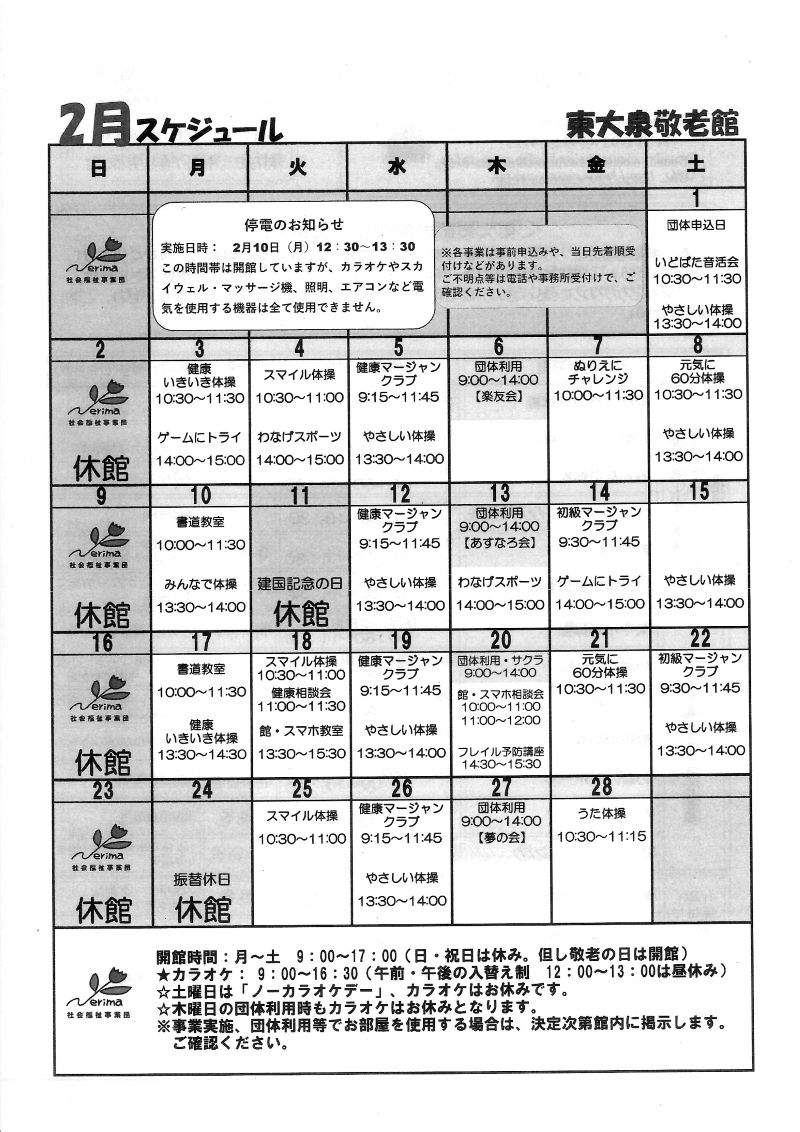 2月スケジュール
東大泉敬老館
日 月 火 水 木 金 土
1
停電のお知らせ
実施日時： 2月10日（月）12：30～13：30
この時間帯は開館していますが、カラオケやスカ
イウェル・マッサージ機、照明、エアコンなど電
気を使用する機器は全て使用できません。
※各事業は事前申込みや、当日先着順受
付けなどがあります。
ご不明点等は電話や事務所受付けで、ご
確認ください。
Nerima
社会福祉事業団
団体申込日
いどばた音活会
10:30～11:30
やさしい体操
13:30～14:00
2
Nerima
社会福祉事業団
休館
3
健康
いきいき体操
10:30～11:30
ゲームにトライ
14:00～15:00
4
スマイル体操
10:30～11:00
わなげスポーツ
14:00～15:00
5
健康マージャン
クラブ
9:15～11:45
やさしい体操
13:30～14:00
6
団体利用
9:00～14:00
【楽友会】
7
ぬりえに
チャレンジ
10:00～11:30
8
元気に
60分体操
10:30～11:30
やさしい体操
13:30～14:00
9
Nerima
社会福祉事業団
休館
10
書道教室
10:00～11:30
みんなで体操
13:30～14:00
11
建国記念の日
休館
12
健康マージャン
クラブ
9:15～11:45
やさしい体操
13:30～14:00
13
団体利用
9:00～14:00
【あすなろ会】
わなげスポーツ
14:00～15:00
14
初級マージャン
クラブ
9:30～11:45
ゲームにトライ
14:00～15:00
15
やさしい体操
13:30～14:00
16
Nerima
社会福祉事業団
休館
17
書道教室
10:00～11:30
健康
いきいき体操
13:30～14:30
18
スマイル体操
10:30～11:00
健康相談会
11:00～11:30
館・スマホ教室
13:30～15:30
19
健康マージャン
クラブ
9:15～11:45
やさしい体操
13:30～14:00
20
団体利用・サクラ
9:00～14:00
館・スマホ相談会
10:00～11:00
11:00～12:00
フレイル予防講座
14:30～15:30
21
元気に
60分体操
10:30～11:30
22
初級マージャン
クラブ
9:30～11:45
やさしい体操
13:30～14:00
23
Nerima
社会福祉事業団
休館
24
振替休日
休館
25
スマイル体操
10:30～11:00
26
健康マージャン
クラブ
9:15～11:45
やさしい体操
13:30～14:00
27
団体利用
9:00～14:00
【夢の会】
28
うた体操
10:30～11:15
Nerima
社会福祉事業団
開館時間：月～土 9：00～17：00（日・祝日は休み。但し敬老の日は開館）
★カラオケ： 9：00～16：30（午前・午後の入替え制 12：00～13：00は昼休み）
☆土曜日は「ノーカラオケデー」、カラオケはお休みです。
☆木曜日の団体利用時もカラオケはお休みとなります。
※事業実施、団体利用等でお部屋を使用する場合は、決定次第館内に掲示します。
ご確認ください。